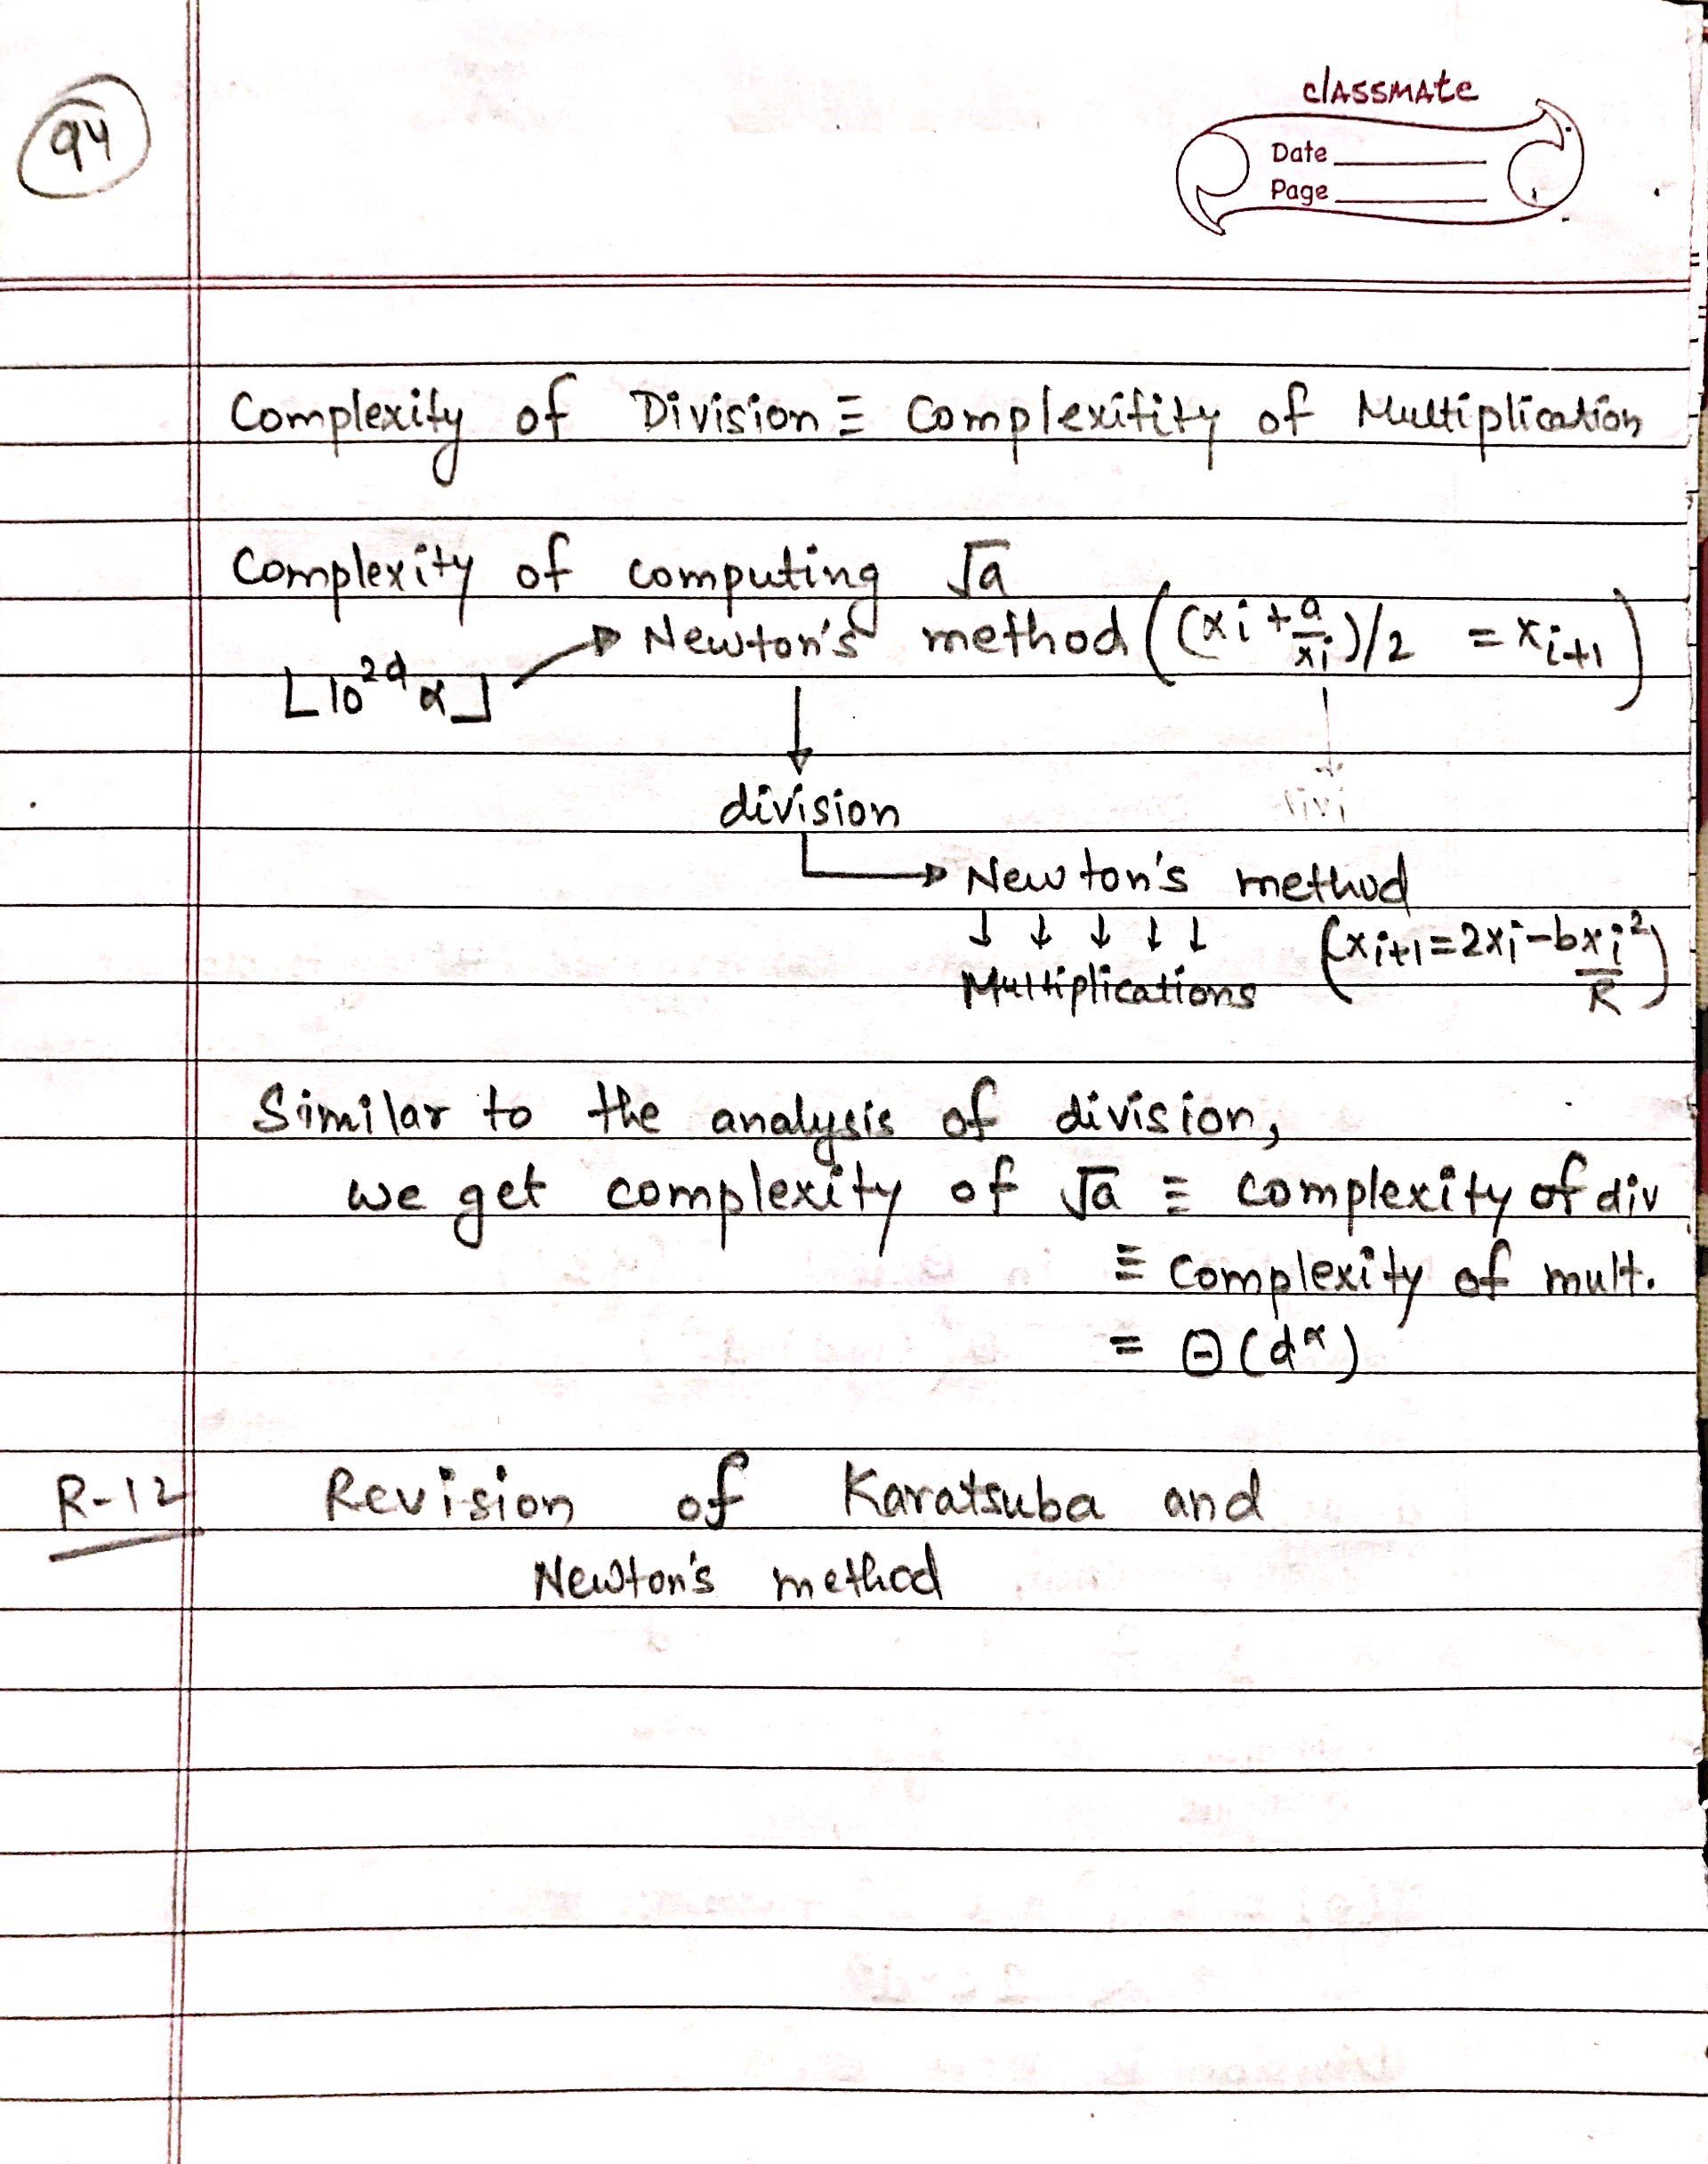 94
classmate
Date
Page
Complexity of Division ≡ Complexifity of Multiplication
Complexity of computing √a
Newton's method ((xi + a/xi)/2 = xi+1)
⌊10^2d α⌋
division
Newton's method
↓ ↓ ↓ ↓ ↓ (xi+1 = 2xi - bxi²/R)
Multiplications
Similar to the analysis of division,
we get complexity of √a ≡ complexity of div
≡ complexity of mult.
= Θ(d^α)
R-12 Revision of Karatsuba and
Newton's method